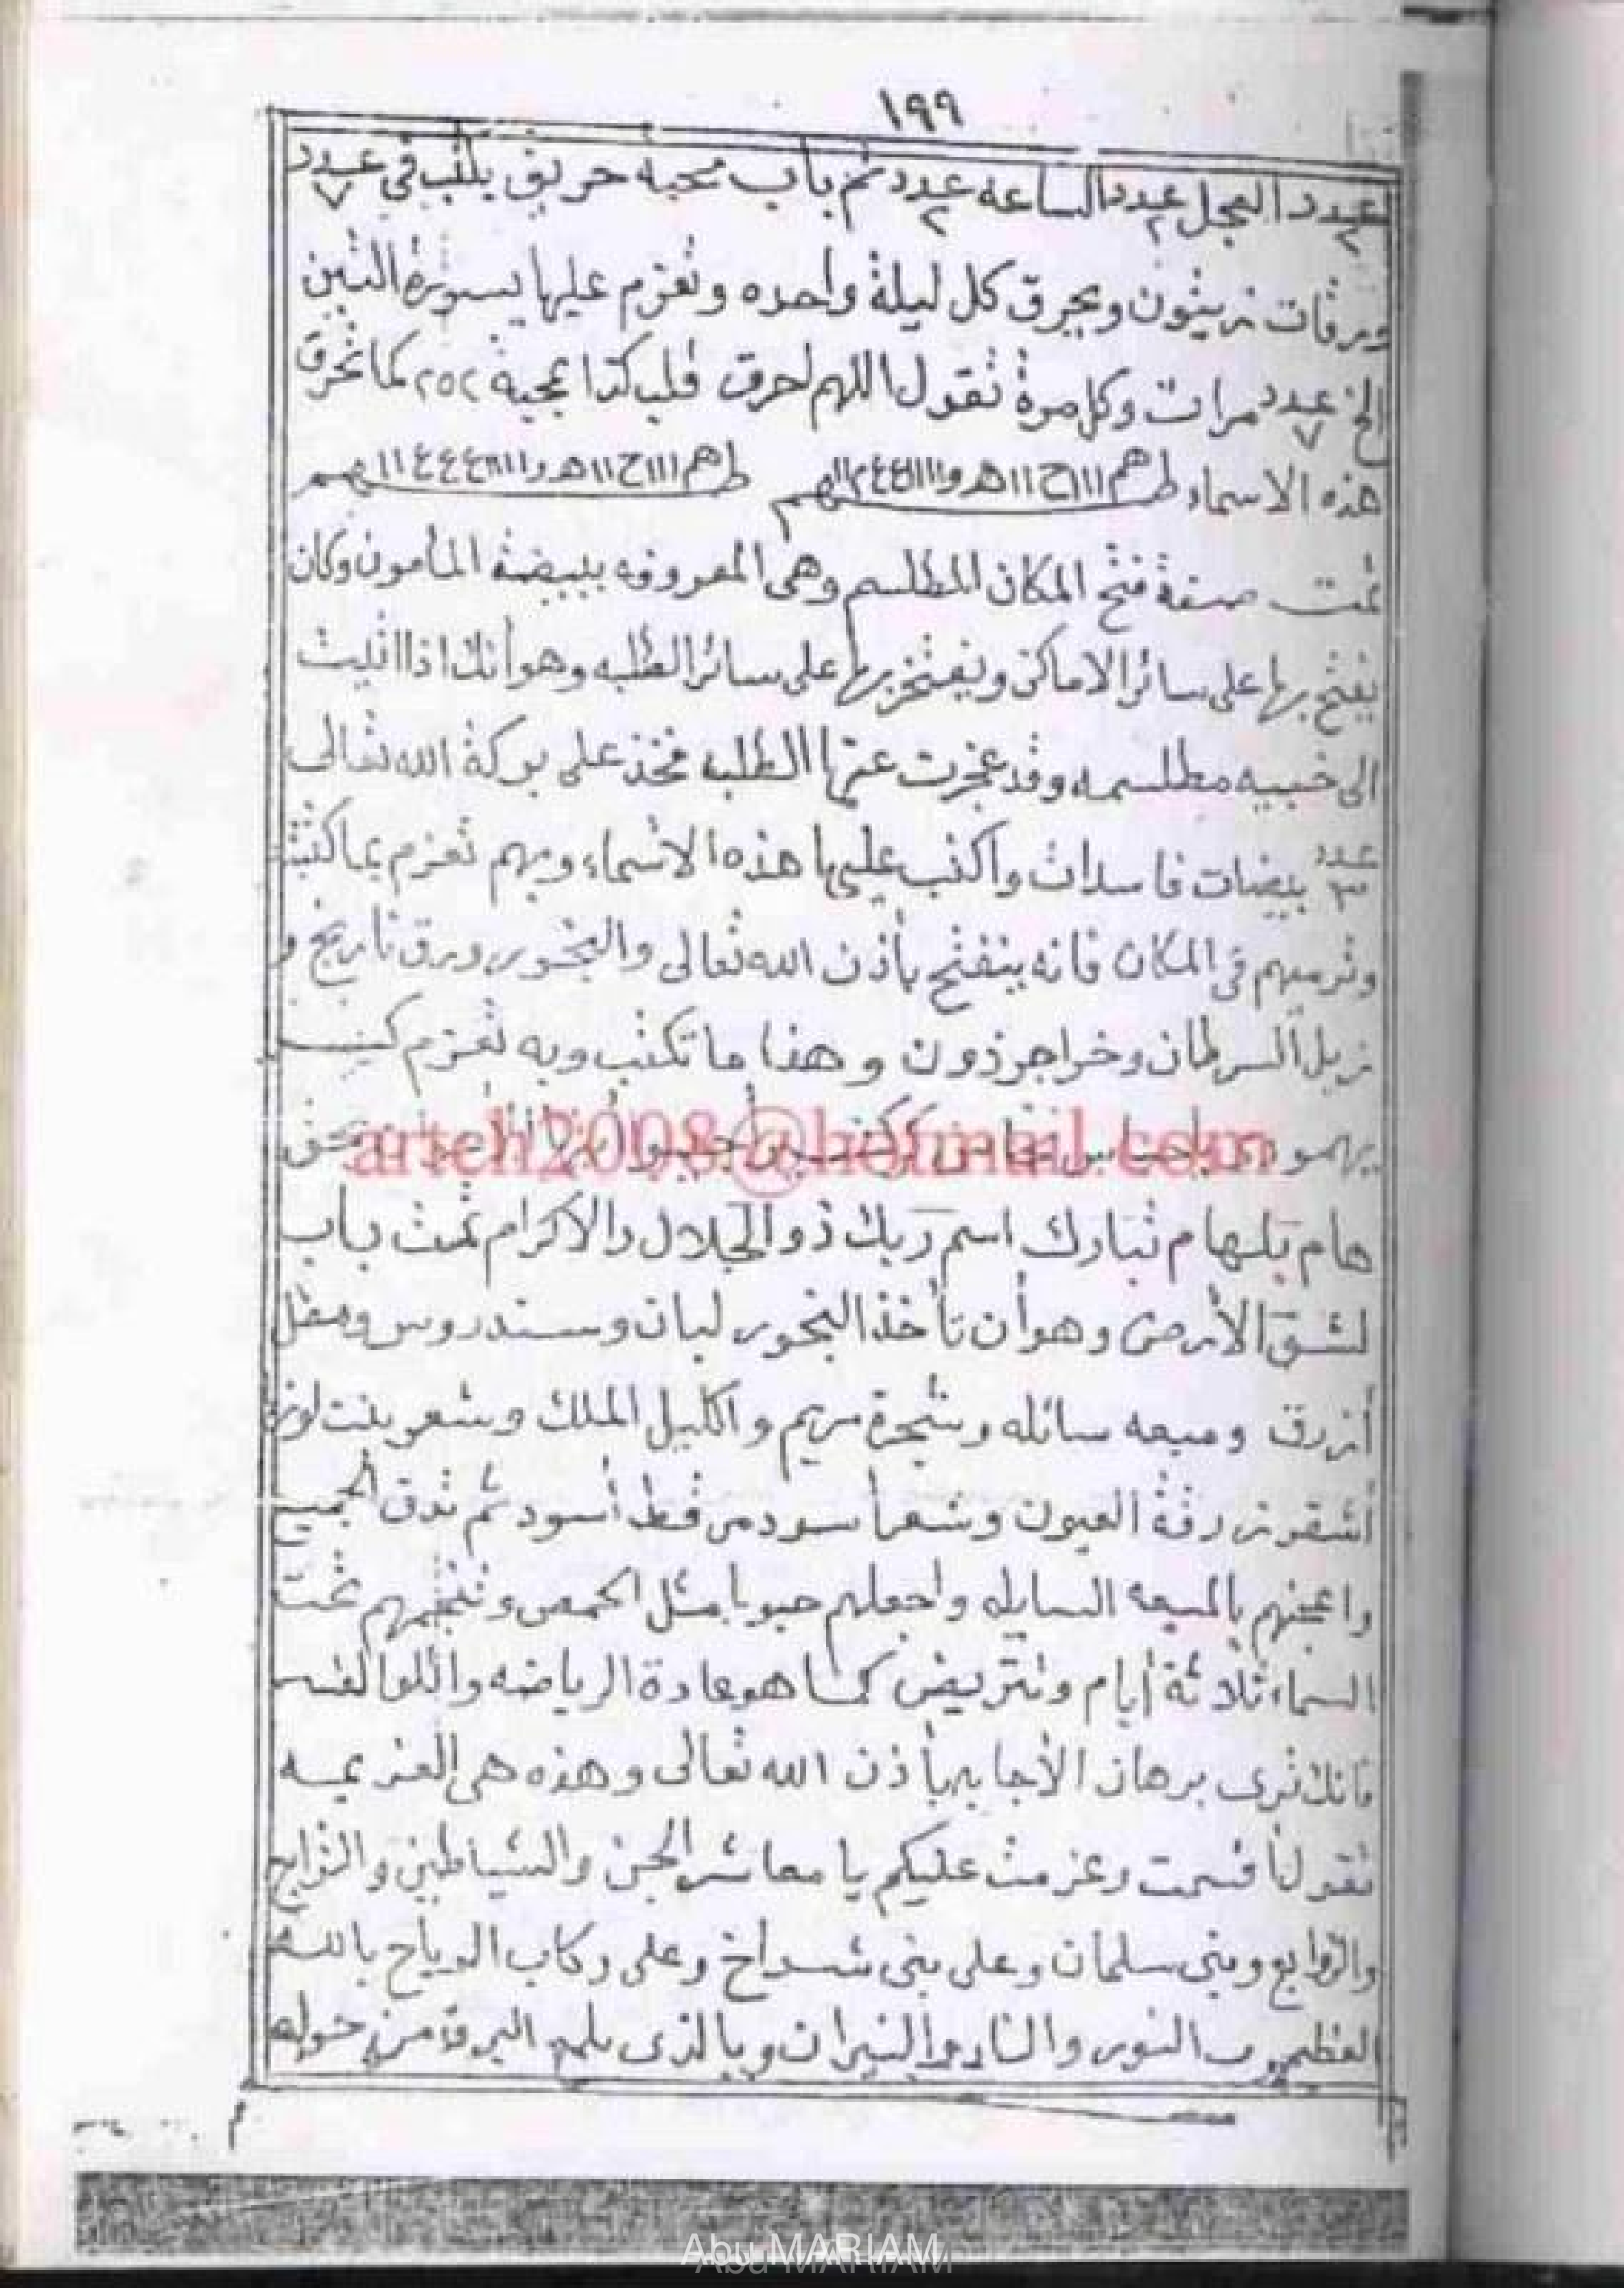 ١٩٩
عدد ٢ العجل عدد ٢ الساعه عدد ٢ تم باب محبة حريق يكتب في عدد ٧
ورقات زيتون ويحرق كل ليلة واحده وتعزم عليها بسورة التين
الخ عدد ٧ مرات وكل مرة تقول اللهم احرق قلب كذا بمحبة ٢٥٢ كما تحرق
هذه الاسماء
تمت صفة فتح المكان المطلسم وهى المعروفه ببيضة المأمون وكان
يفتح بها على سائر الاماكن ويفتخر بها على سائر الطلبه وهو أنك اذا اتيت
الى خبيه مطلسمه وقد عجزت عنها الطلبه فخذ على بركة الله تعالى
عدد ٣ بيضات فاسدات واكتب عليها هذه الاسماء وبهم تعزم بما كتبته
وترميهم في المكان فانه ينفتح بأذن الله تعالى والبخور ورق نارنج و
زبل السرطان وخراجرذون وهذا ما تكتب وبه تعزم
هام بلهام تبارك اسم ربك ذو الجلال والاكرام تمت باب
لشق الأرض وهو أن تأخذ البخور لبان وسندروس ومقل
أزرق وميعه سائله وشجرة مريم واكليل الملك وشعر بنت
أشقر زرقة العيون وشعر أسود من قط أسود ثم تدق الجميع
واعجنهم بالميعه السايله واجعلهم حبوبا مثل الحمص وتنجمهم تحت
السماء ثلاثة أيام وتتريض كما هو عادة الرياضه
فانك ترى برهان الأجابه بأذن الله تعالى وهذه هى العزيمه
تقول أقسمت وعزمت عليكم يا معاشر الجن والشياطين والتوابع
والزوابع وبنى سلمان وعلى بنى شداخ وعلى ركاب الرياح بالله
العظيم رب النور والنار والنيران وبالذى يلمع البرق من حوله
arteh2008@hotmail.com
Abu MARIAM